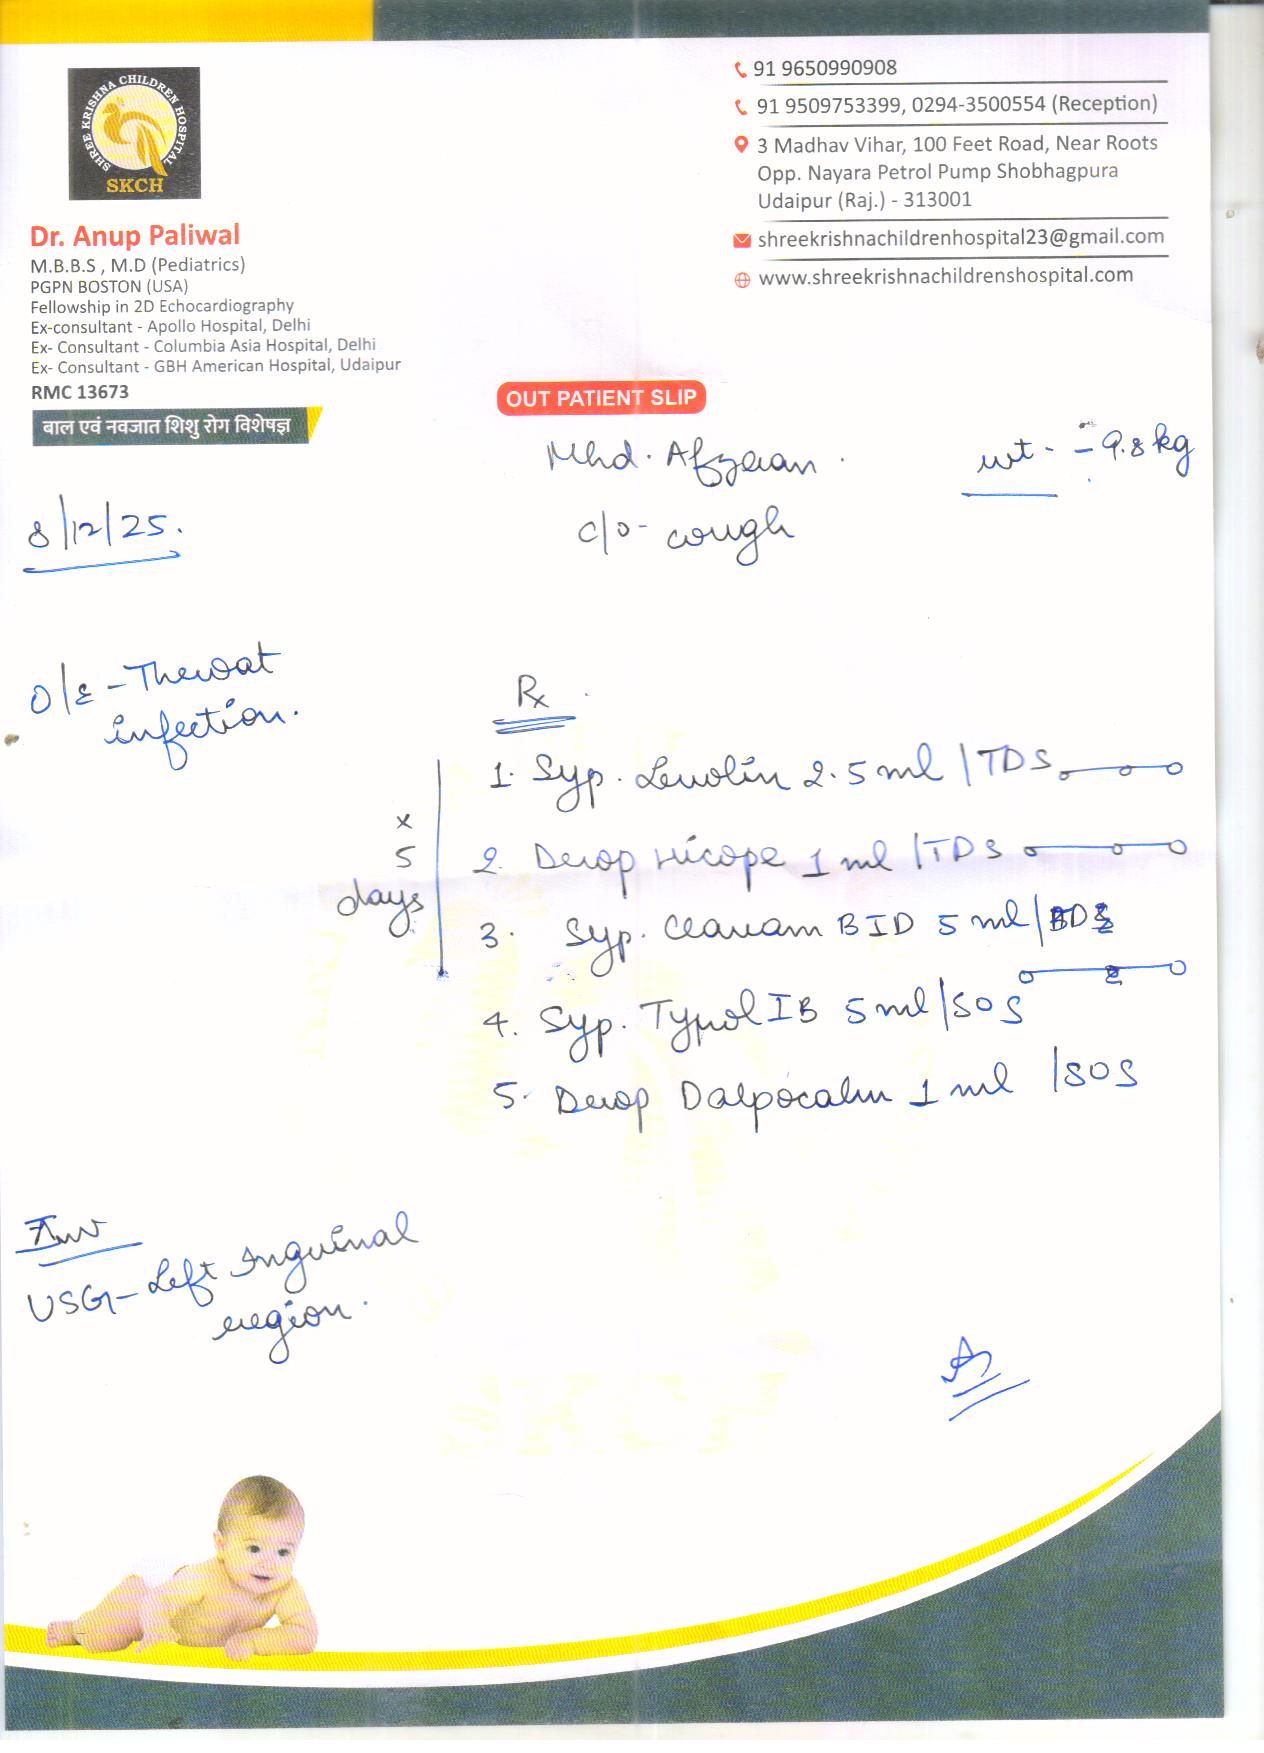 SHREE KRISHNA CHILDREN HOSPITAL
SKCH
91 9650990908
91 9509753399, 0294-3500554 (Reception)
3 Madhav Vihar, 100 Feet Road, Near Roots
Opp. Nayara Petrol Pump Shobhagpura
Udaipur (Raj.) - 313001
shreekrishnachildrenhospital23@gmail.com
www.shreekrishnachildrenshospital.com
Dr. Anup Paliwal
M.B.B.S , M.D (Pediatrics)
PGPN BOSTON (USA)
Fellowship in 2D Echocardiography
Ex-consultant - Apollo Hospital, Delhi
Ex- Consultant - Columbia Asia Hospital, Delhi
Ex- Consultant - GBH American Hospital, Udaipur
RMC 13673
बाल एवं नवजात शिशु रोग विशेषज्ञ
OUT PATIENT SLIP
Mhd. Afzaan.
wt - 9.8 kg
8/12/25.
c/o - cough
O/E - Throat
infection.
Rx
1. Syp. 2.5 ml / TDS
2. Drop 1 ml / TDS
3. Syp. Clavam BID 5 ml /
4. Syp. IB 5 ml / SOS
5. Drop 1 ml / SOS
x
5
days
Inv
USG - Left Inguinal
region.
SKCH